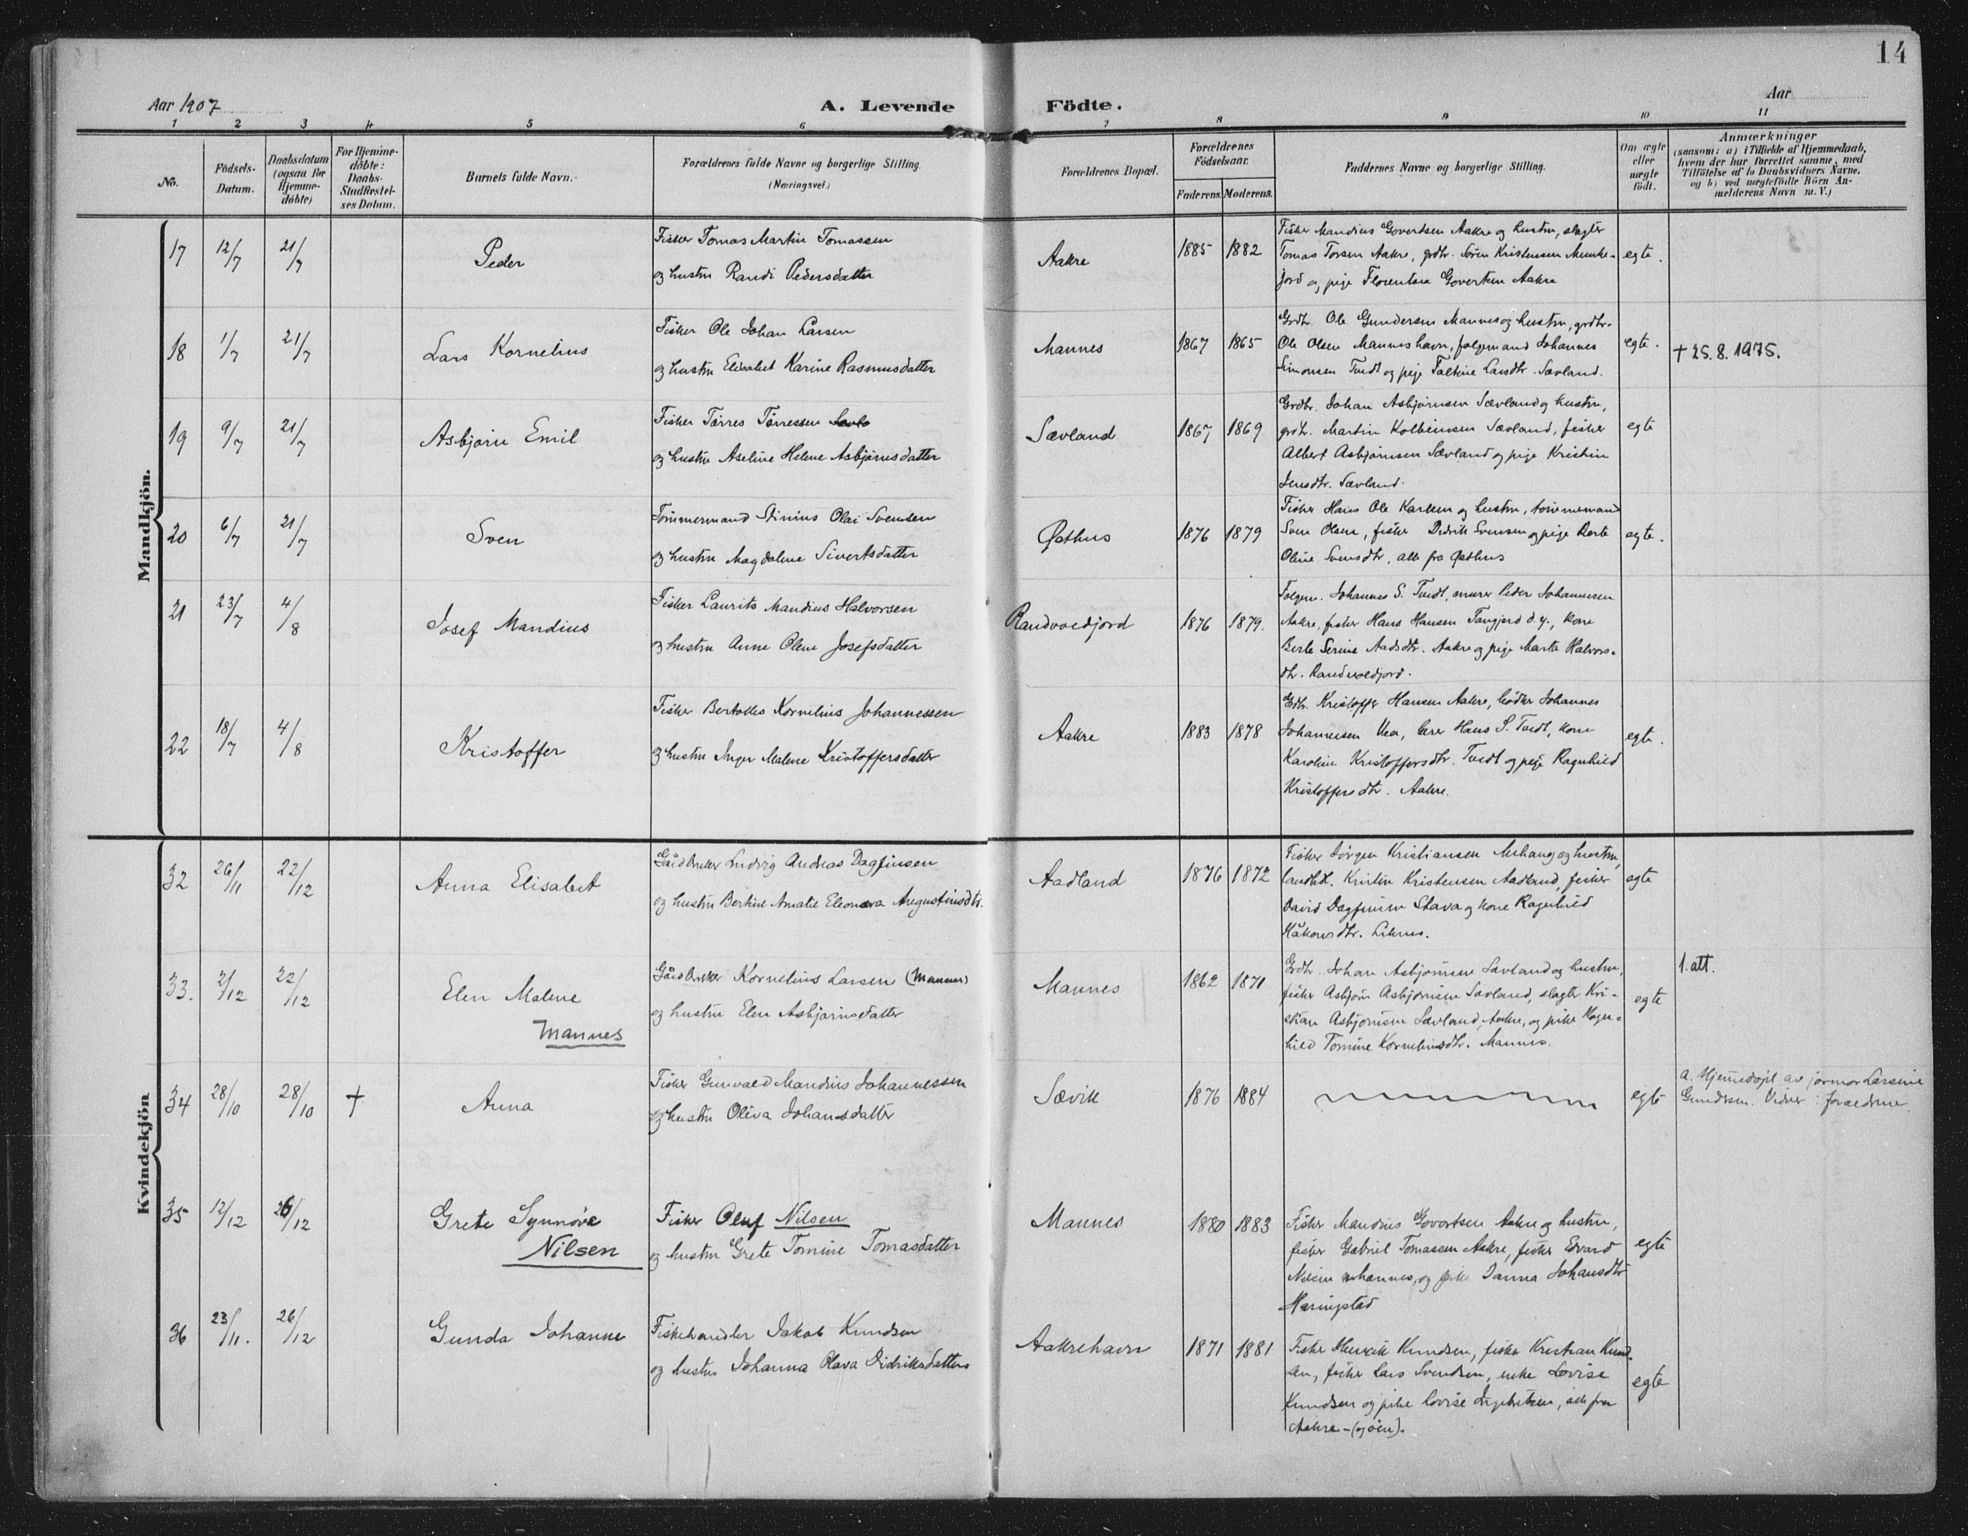 14
Aar 1907
A. Levende Födte.
Aar
1 2 3 4 5 6 7 8 9 10 11
No.
Födsels-
Datum.
Daabsdatum
(ogsaa for
Hjemme-
döbte)
For Hjemme-
döbte:
Daabs-
Stadfæstel-
ses Datum.
Barnets fulde Navn.
Forældrenes fulde Navne og borgerlige Stilling.
(Næringsvei.)
Forældrenes Bopæl.
Forældrenes
Födselsaar.
Faderens. Moderens.
Faddernes Navne og borgerlige Stilling.
Om ægte
eller
uægte
født.
Anmærkninger
(saasom: a) i Tilfælde af Hjemmedaab,
hvem der har forrettet samme, med
Tilföielse af to Daabsvidners Navne,
og b) ved uægtefödte Börn An-
melderens Navn m. V.)
Mandkjön.
17 12/7 21/7 Peder
Fisker Tomas Martin Tomassen
og hustru Randi Pedersdatter
Aakre 1885 1882
Fisker Mandius Govertsen Aakre og hustru, slagter
Tomas Torsen Aakre, grdbr. Sören Kristensen Munke-
jord og pige Florentine Govertsen Aakre
egte.
18 1/7 21/7 Lars Kornelius
Fisker Ole Johan Larsen
og hustru Elisabet Karine Rasmusdatter
Mannes 1867 1865
Grdbr. Ole Gundersen Mannes og hustru, grdbr.
Ole Olsen Manneshavn, folgemand Johannes
Simonsen Tvedt og pige Larsdtr. Sævland.
egte.
+ 25.8.1975.
19 9/7 21/7 Asbjørn Emil
Fisker Tørres Tørressen
og hustru Aseline Helene Asbjørnsdatter
Sævland 1867 1869
Grdbr. Johan Asbjørnsen Sævland og hustru,
grdbr. Martin Kolbeinsen Sævland, fisker
Albert Asbjørnsen Sævland og pige Kristin
Jensdtr. Sævland.
egte
20 6/7 21/7 Sven
Tømmermand Stinius Olai Svensen
og hustru Magdalene Sivertsdatter
Østhus 1876 1879
Fisker Hans Ole Karlsen og hustru, tømmermand
Sven Olsen, fisker Didrik Svensen og pige Berte
Oline Svensdtr, alle fra Østhus
egte.
21 23/7 4/8 Josef Mandius
Fisker Laurits Mandius Halvorsen
og hustru Anne Oline Josefsdatter
Sandvoedjord 1876 1879.
Folgem. Johannes S. Tvedt, murer Peder Johannesen
Aakre, fisker Hans Hansen Tangjerd d.y., kone
Berte Serine Aadsdtr. Aakre og pige Marta Halvors-
dtr. Sandvoedjord.
22 18/7 4/8 Kristoffer
Fisker Bertolles Kornelius Johannessen
og hustru Inger Malene Kristoffersdatter
Aakre 1883 1878
Grdbr. Kristoffer Hansen Aakre, bødker Johannes
Johannesen Vea, lærer Hans S. Tvedt, kone
Karoline Kristoffersdtr. Tvedt og pige Ragnhild
Kristoffersdtr. Aakre.
egte.
Kvindekjön
32 26/11 22/12 Anna Elisabet
Gårdbruker Ludvig Andreas Dagfinsen
og hustru Bertine Amalie Eleonora Augustinusdtr.
Aadland 1876 1872
Fisker Jørgen Kristiansen og hustru,
Kristin Kristensen Aadland, fisker
David Dagfinsen Stava og kone Ragnhild
Håkonsdtr. Liknes.
egte
33. 2/12 22/12 Elen Malene
Mannes
Gårdbruker Kornelius Larsen (Mannes)
og hustru Elen Asbjørnsdatter
Mannes 1862 1871
Grdbr. Johan Asbjørnsen Sævland og hustru,
fisker Asbjørn Asbjørnsen Sævland, slagter Kri-
stian Asbjørnsen Sævland, Aakre, og pike Ragn-
hild Tomine Kornelinsdtr. Mannes.
egte
1. att.
34 28/10 28/10 + Anna
Fisker Gunvald Mandius Johannessen
og hustru Oliva Johansdatter
Sævik 1876 1884
egte
a. Hjemmedøpt av jormor Larsine
Gundersen. Vidner: foraeldrene
35 12/12 26/12 Grete Synnöve
Nilsen
Fisker Oluf Nilsen
og hustru Grete Tomine Tomasdatter
Mannes 1880 1883
Fisker Mandius Govertsen Aakre og hustru,
fisker Gabriel Tomassen Aakre, fisker Edvard
Nilsen Mannes, og pike Janna Johansdtr
egte
36 23/11. 26/12 Gunda Johanne
Fiskehandler Jakob Knudsen
og hustru Johanna Olava Didriksdatter
Aakrehavn 1871 1881
Fisker Henrik Knudsen, fisker Kristian Knud-
sen, fisker Lars Svendsen, enke Lovise
Knudsen og pike Lovise, alle fra
Aakre-(sjøen).
egte